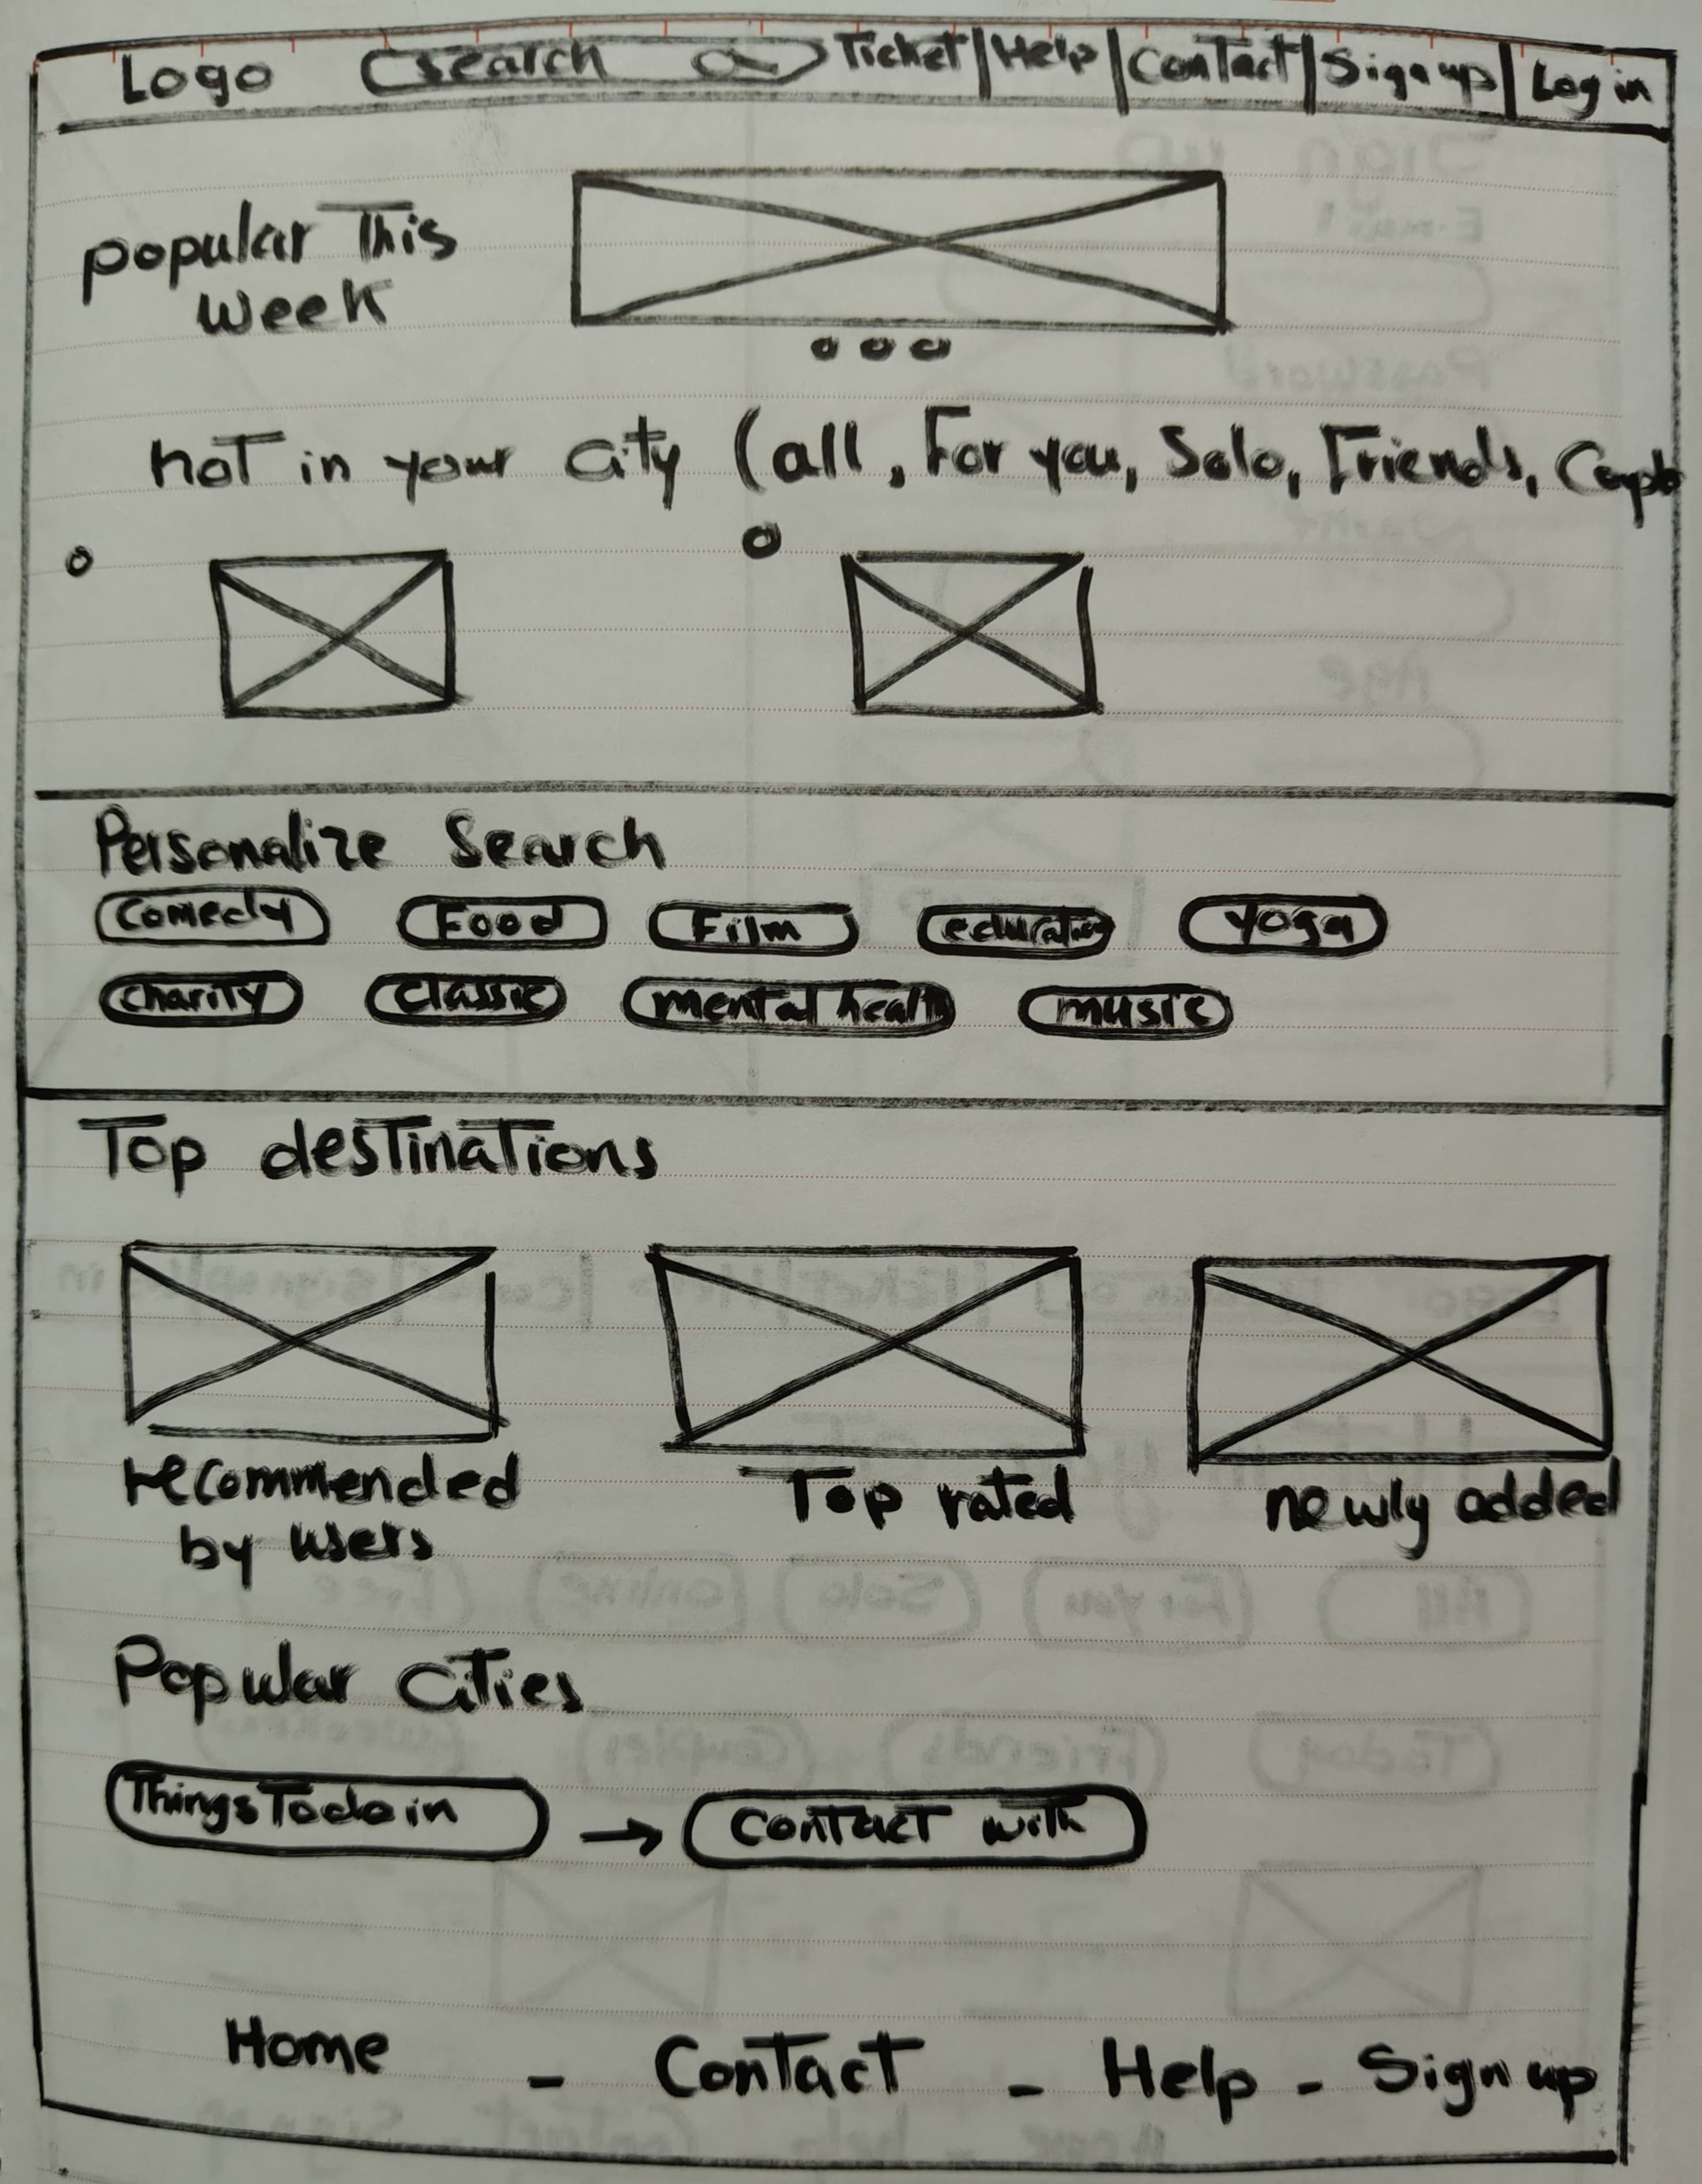 Logo search Ticket | Help | Contact | Sign up | Log in
popular This
week
hot in your city (all, For you, Solo, Friends,
Personalize Search
Comedy Food Film education Yoga
charity classic mental health music
Top destinations
recommended
by users
Top rated
newly added
Popular cities
Things To do in → contact with
Home - Contact - Help - Sign up